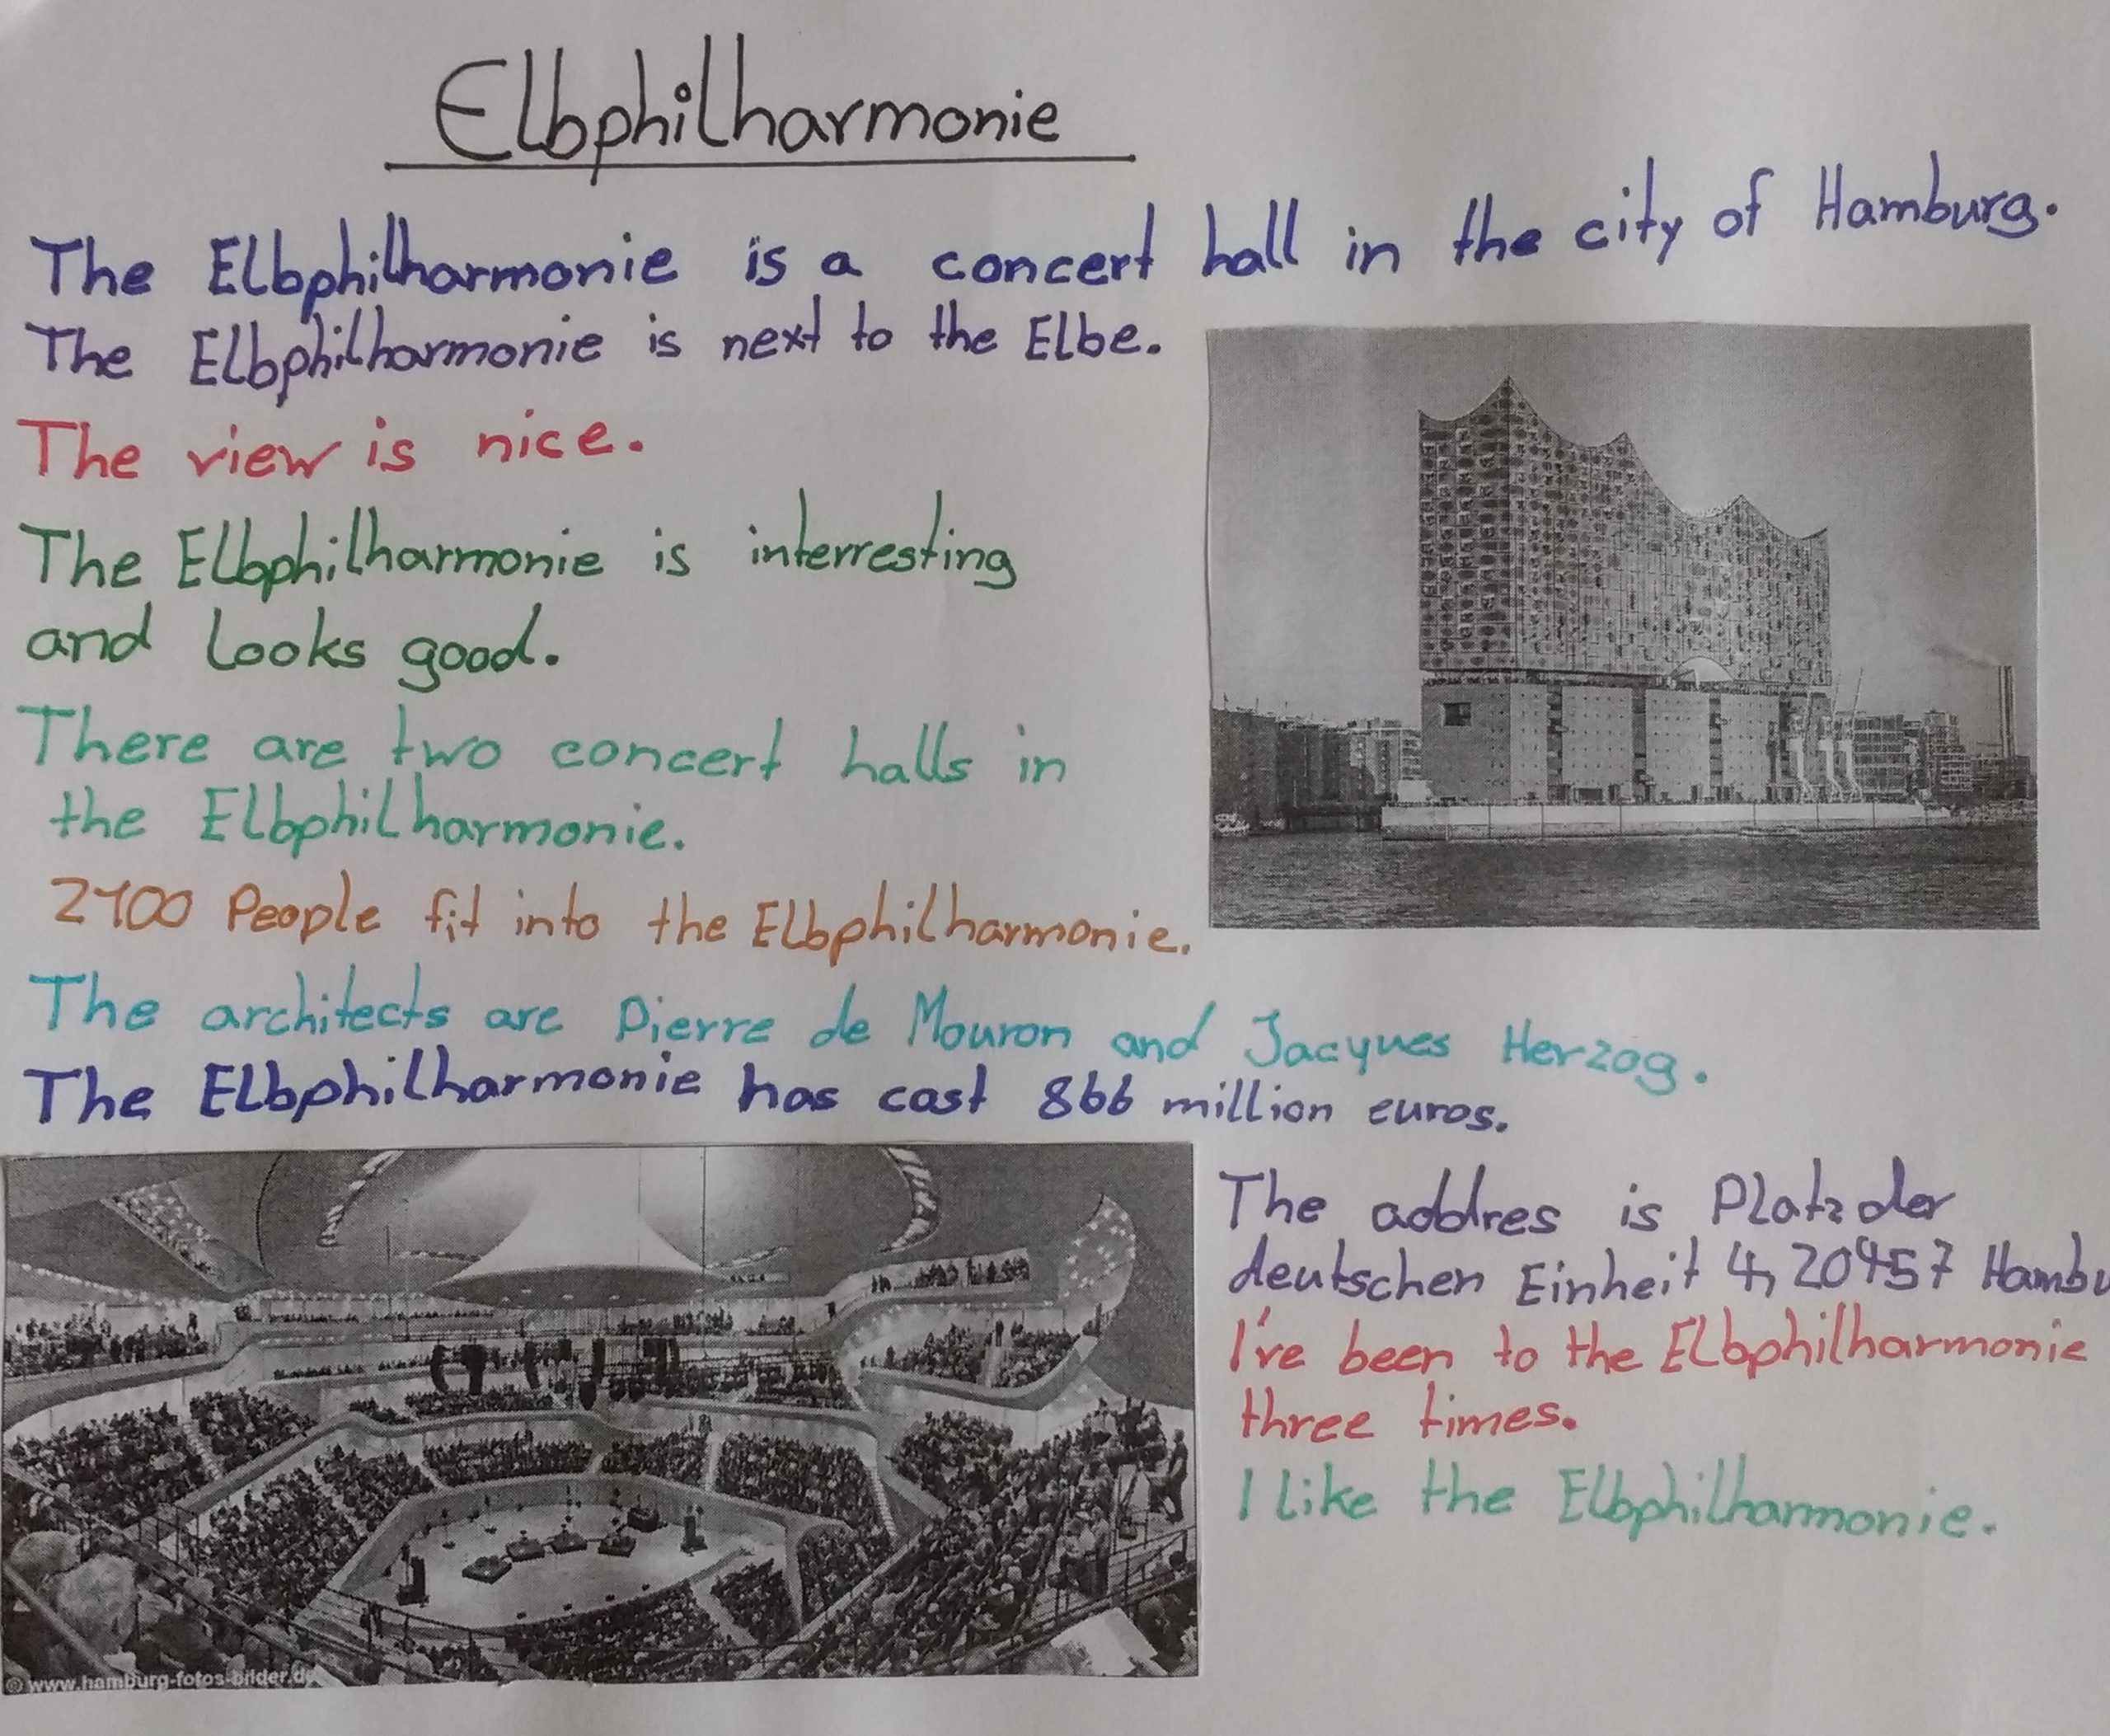 Elbphilharmonie
The Elbphilharmonie is a concert hall in the city of Hamburg.
The Elbphilharmonie is next to the Elbe.
The view is nice.
The Elbphilharmonie is interresting
and looks good.
There are two concert halls in
the Elbphilharmonie.
2100 People fit into the Elbphilharmonie.
The architects are Pierre de Mouron and Jacques Herzog.
The Elbphilharmonie has cost 866 million euros.
The addres is Platz der
deutschen Einheit 4, 20457 Hambu
I've been to the Elbphilharmonie
three times.
I like the Elbphilharmonie.
© www.hamburg-fotos-bilder.de